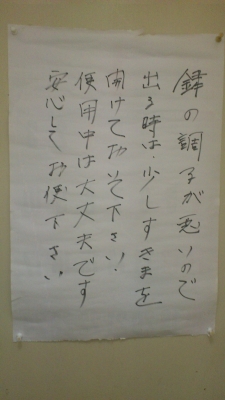 鍵の調子が悪いので
出る時は、少しすきまを
開けておいて下さい!
使用中は大丈夫です
安心してお使下さい